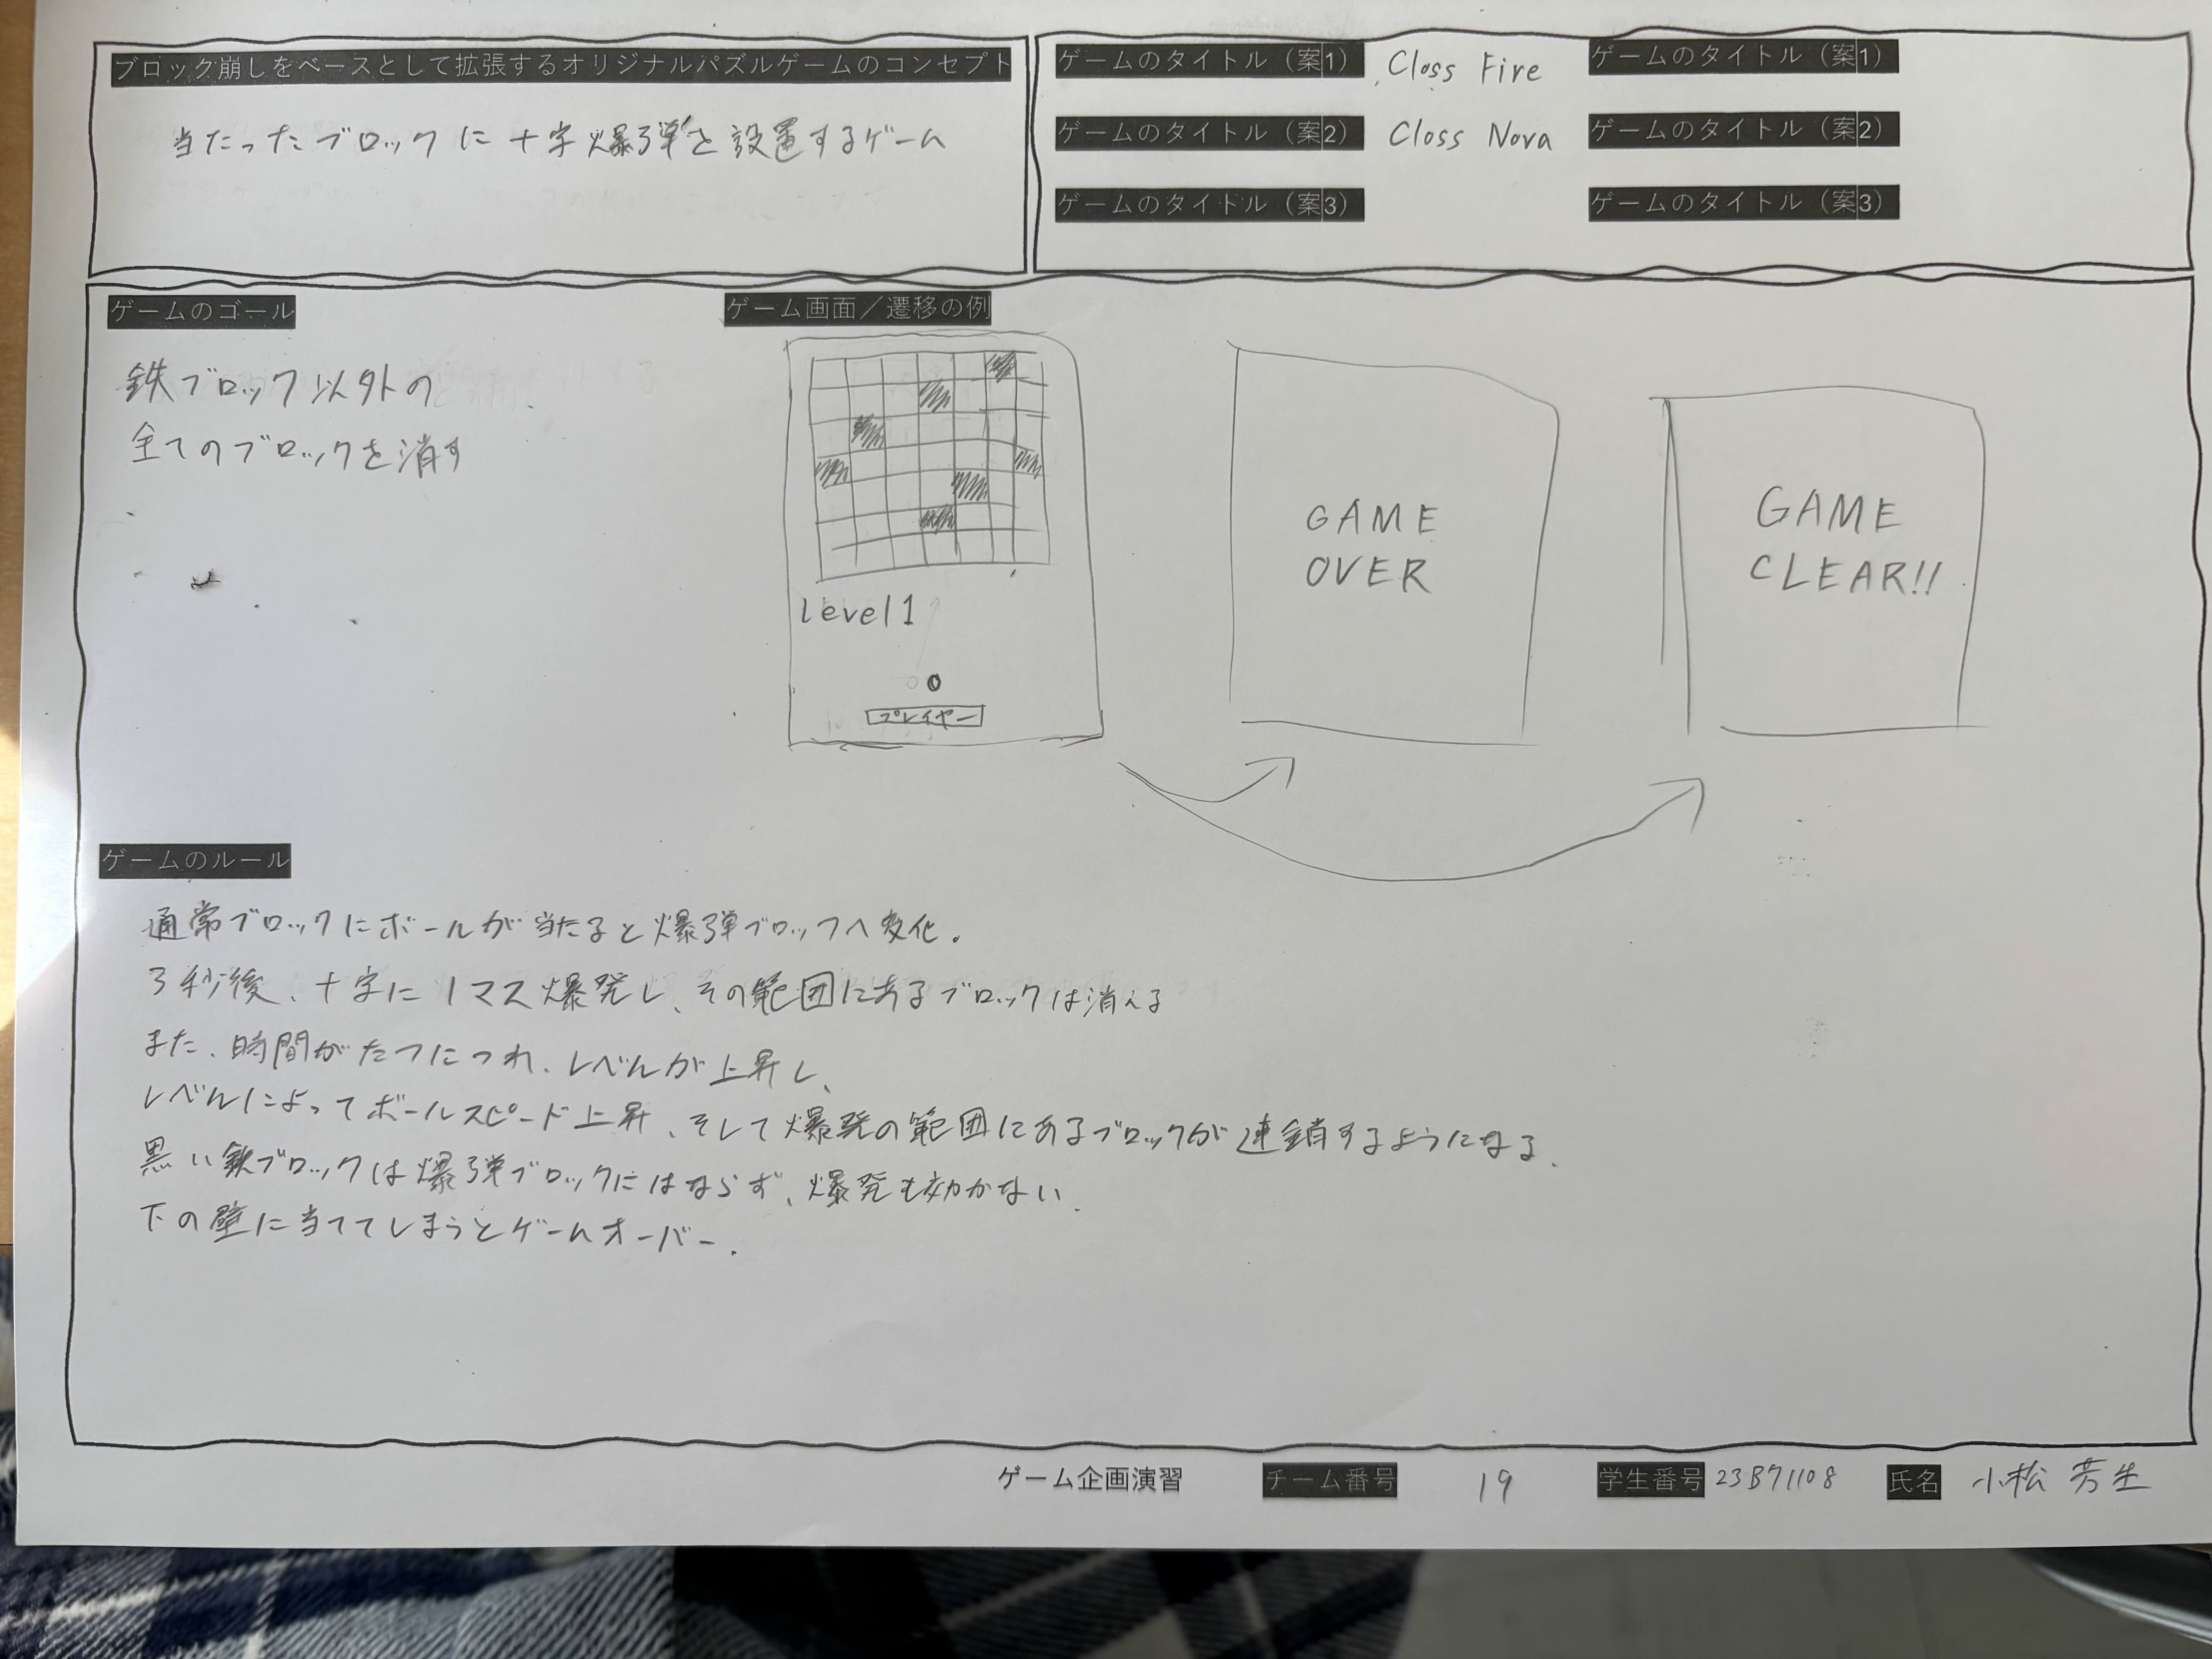 ブロック崩しをベースとして拡張するオリジナルパズルゲームのコンセプト
当たったブロックに十字爆弾を設置するゲーム
ゲームのタイトル（案1） Closs Fire ゲームのタイトル（案1）
ゲームのタイトル（案2） Closs Nova ゲームのタイトル（案2）
ゲームのタイトル（案3） ゲームのタイトル（案3）
ゲームのゴール
鉄ブロック以外の
全てのブロックを消す
ゲーム画面／遷移の例
level 1
プレイヤー
GAME
OVER
GAME
CLEAR!!
ゲームのルール
通常ブロックにボールが当たると爆弾ブロックへ変化。
3秒後、十字に1マス爆発し、その範囲にあるブロックは消える
また、時間がたつにつれ、レベルが上昇し、
レベルによってボールスピード上昇、そして爆発の範囲にあるブロックが連鎖するようになる.
黒い鉄ブロックは爆弾ブロックにはならず、爆発も効かない.
下の壁に当ててしまうとゲームオーバー.
ゲーム企画演習 チーム番号 19 学生番号 23B71108 氏名 小松 芳生